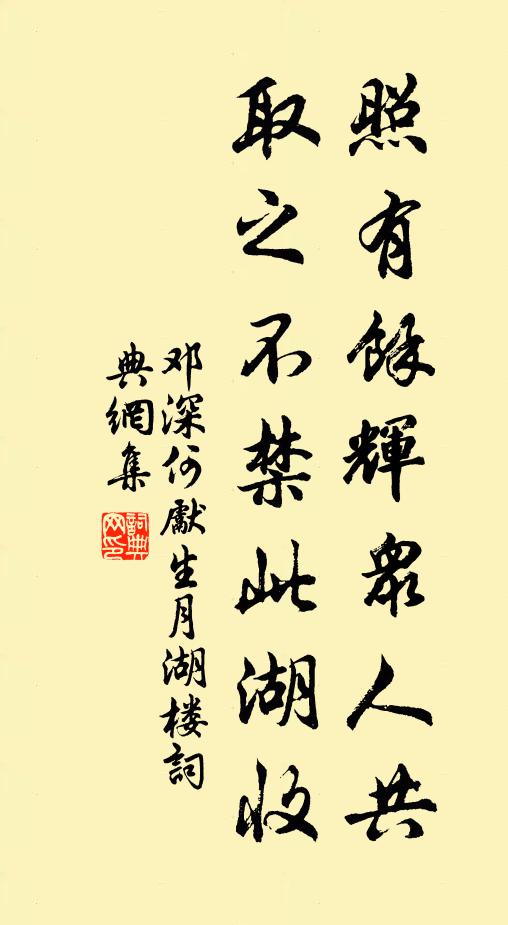 照有餘輝衆人共
取之不禁此湖收
邓深何獻生月湖楼詞
典網集
詞典
网印